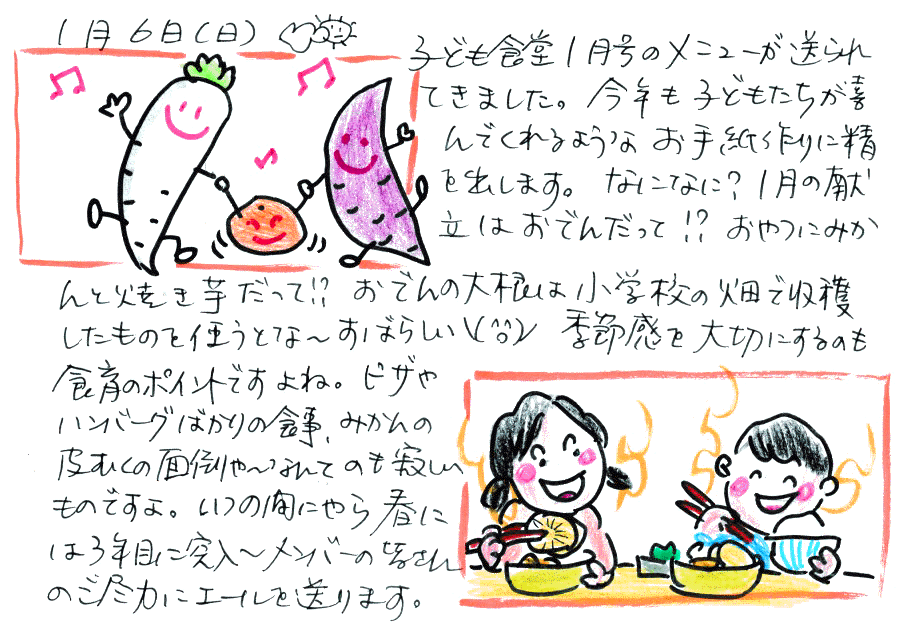 1月6日(日)
子ども食堂1月号のメニューが送られ
てきました。今年も子どもたちが喜
んでくれるようなお手紙作りに精
を出します。なになに?1月の献
立はおでんだって!?おやつにみか
んと焼き芋だって!?おでんの大根は小学校の畑で収穫
したものを使うとな〜すばらしい\(^^)/ 季節感を大切にするのも
食育のポイントですよね。ピザや
ハンバーグばかりの食事、みかんの
皮むくの面倒や〜なんてのも寂しい
ものですよ。いつの間にやら春に
は3年目に突入〜メンバーの皆さん
のご尽力にエールを送ります。